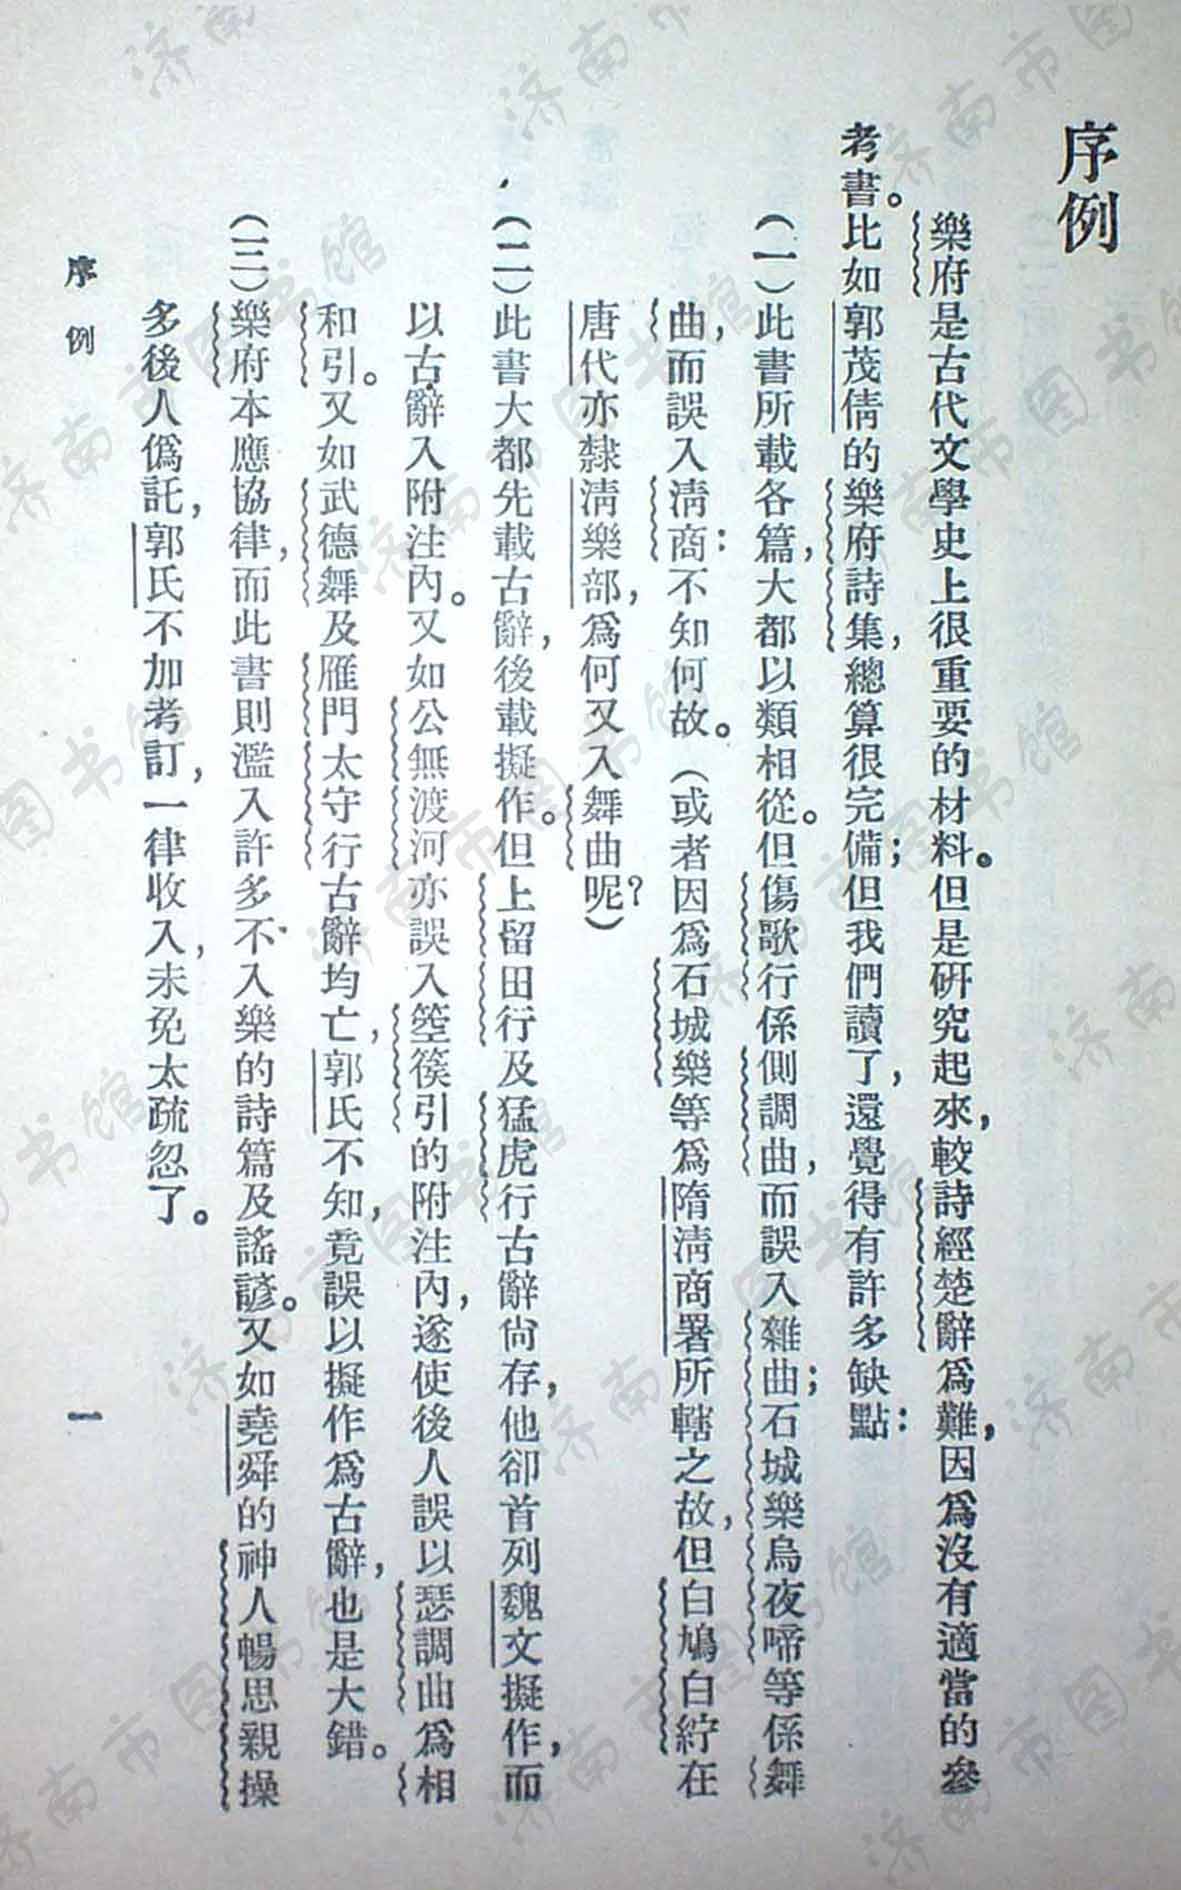 序例
樂府是古代文學史上很重要的材料。但是研究起來，較詩經楚辭爲難，因爲沒有適當的參
考書。比如郭茂倩的樂府詩集，總算很完備；但我們讀了，還覺得有許多缺點：
（一）此書所載各篇，大都以類相從。但傷歌行係側調曲，而誤入雜曲；石城樂烏夜啼等係舞
曲，而誤入淸商：不知何故。（或者因爲石城樂等爲隋淸商署所轄之故，但白鳩白紵在
唐代亦隸淸樂部，爲何又入舞曲呢？）
（二）此書大都先載古辭，後載擬作。但上留田行及猛虎行古辭尙存，他卻首列魏文擬作，而
以古辭入附注內。又如公無渡河亦誤入箜篌引的附注內，遂使後人誤以瑟調曲爲相
和引。又如武德舞及雁門太守行古辭均亡，郭氏不知，竟誤以擬作爲古辭，也是大錯。
（三）樂府本應協律，而此書則濫入許多不入樂的詩篇及謠諺。又如堯舜的神人暢思親操
多後人僞託，郭氏不加考訂，一律收入，未免太疏忽了。
序例
一
济南市图书馆